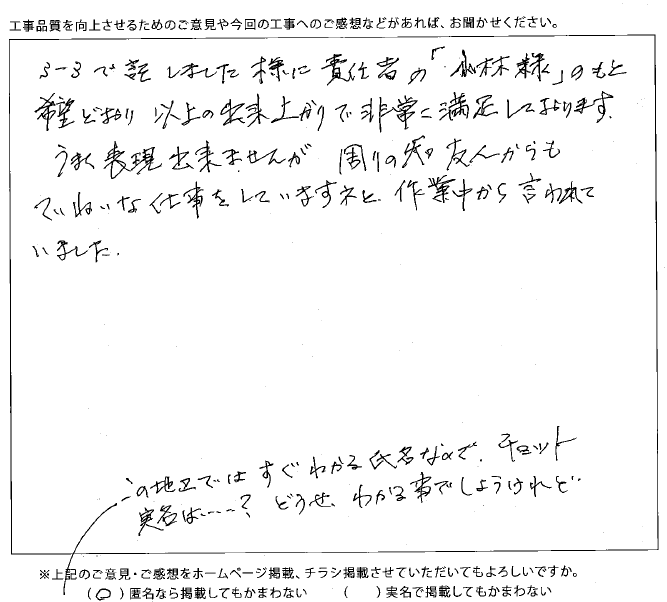 工事品質を向上させるためのご意見や今回の工事へのご感想などがあれば、お聞かせください。
3-3で記しました様に責任者の「小林様」のもと
希望どおり以上の出来上がりで非常に満足しております。
うまく表現出来ませんが 周りの 友人からも
ていねいな仕事をしていますネと、作業中から言われて
いました。
この地区ではすぐわかる氏名なので、チョット
実名は……？ どうせ、わかる事でしようけれど…
※上記のご意見・ご感想をホームページ掲載、チラシ掲載させていただいてもよろしいですか。
（○）匿名なら掲載してもかまわない （ ）実名で掲載してもかまわない